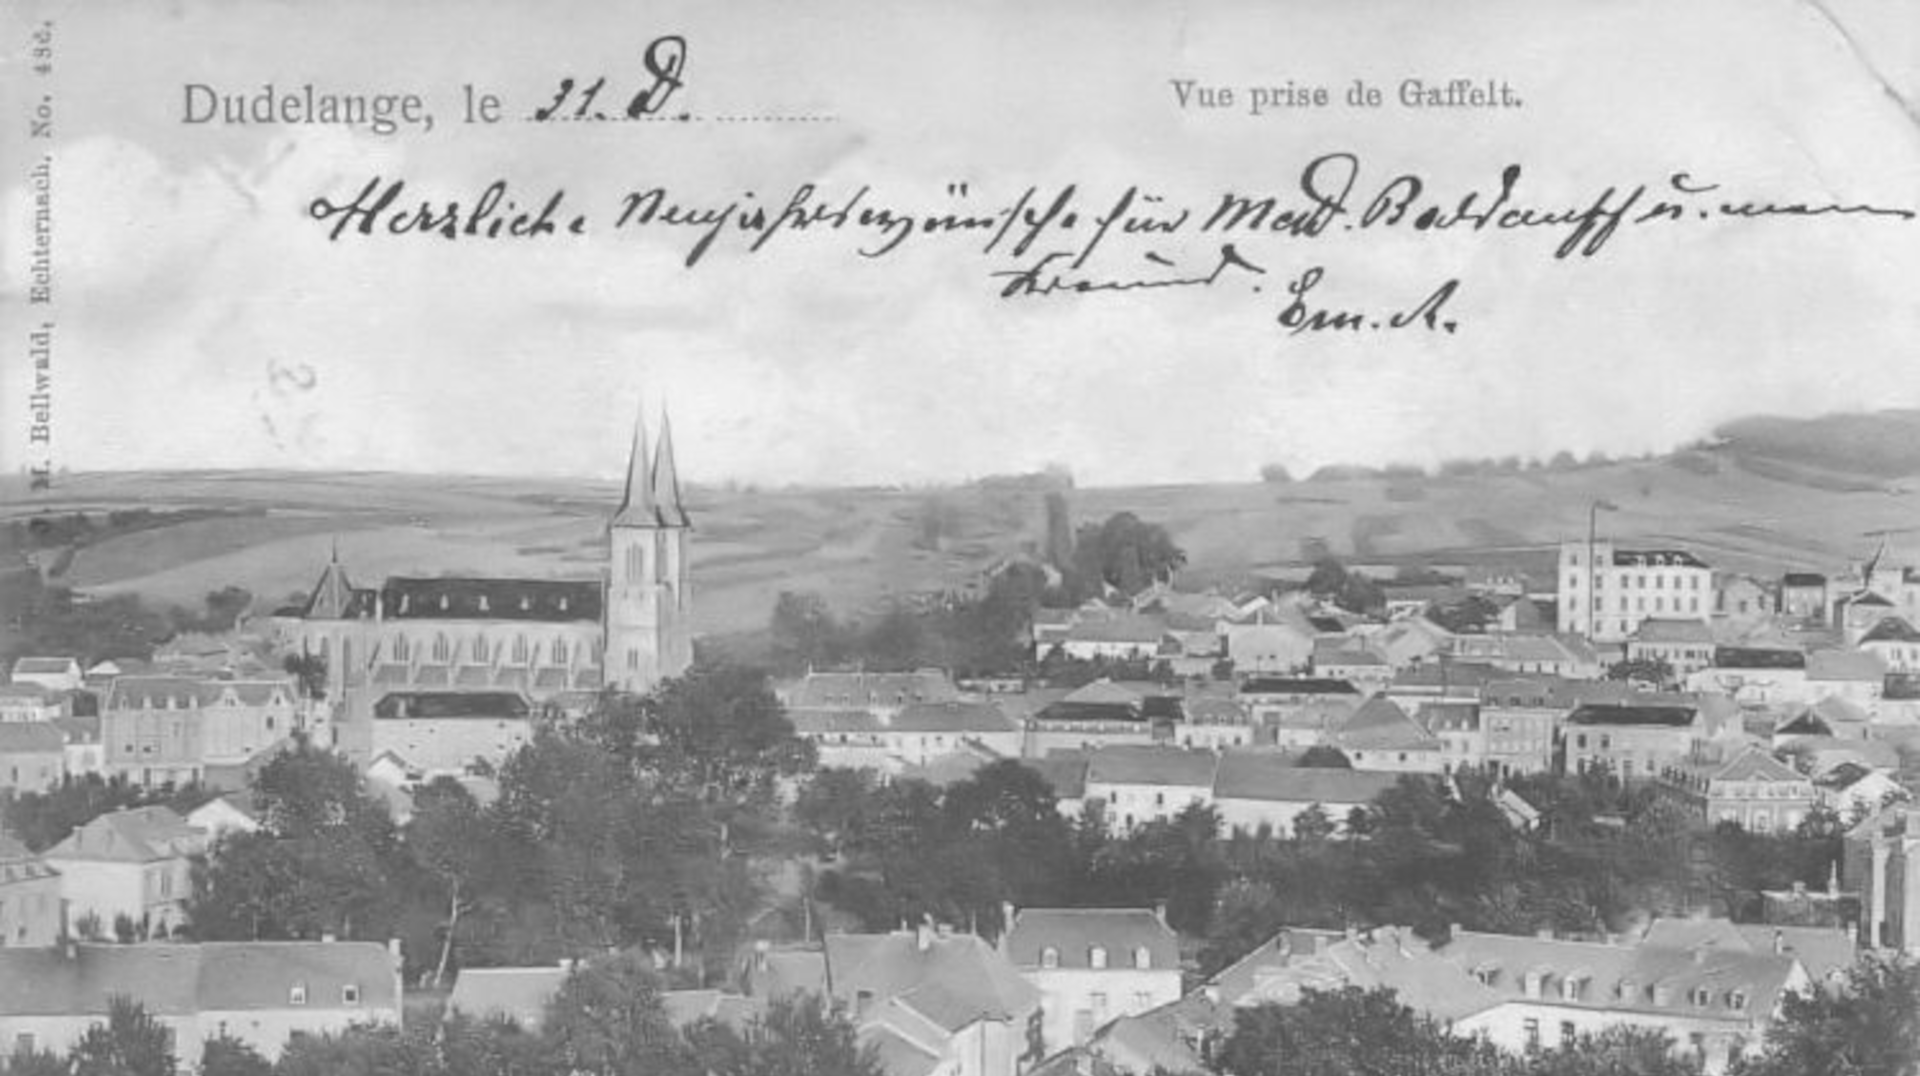 Dudelange, le 31. D.
Vue prise de Gaffelt.
Herzliche Neujahrswünsche für Mad. Baldauff u. meinen
Freund. Em. A.
M. Bellwald, Echternach. No. 436.